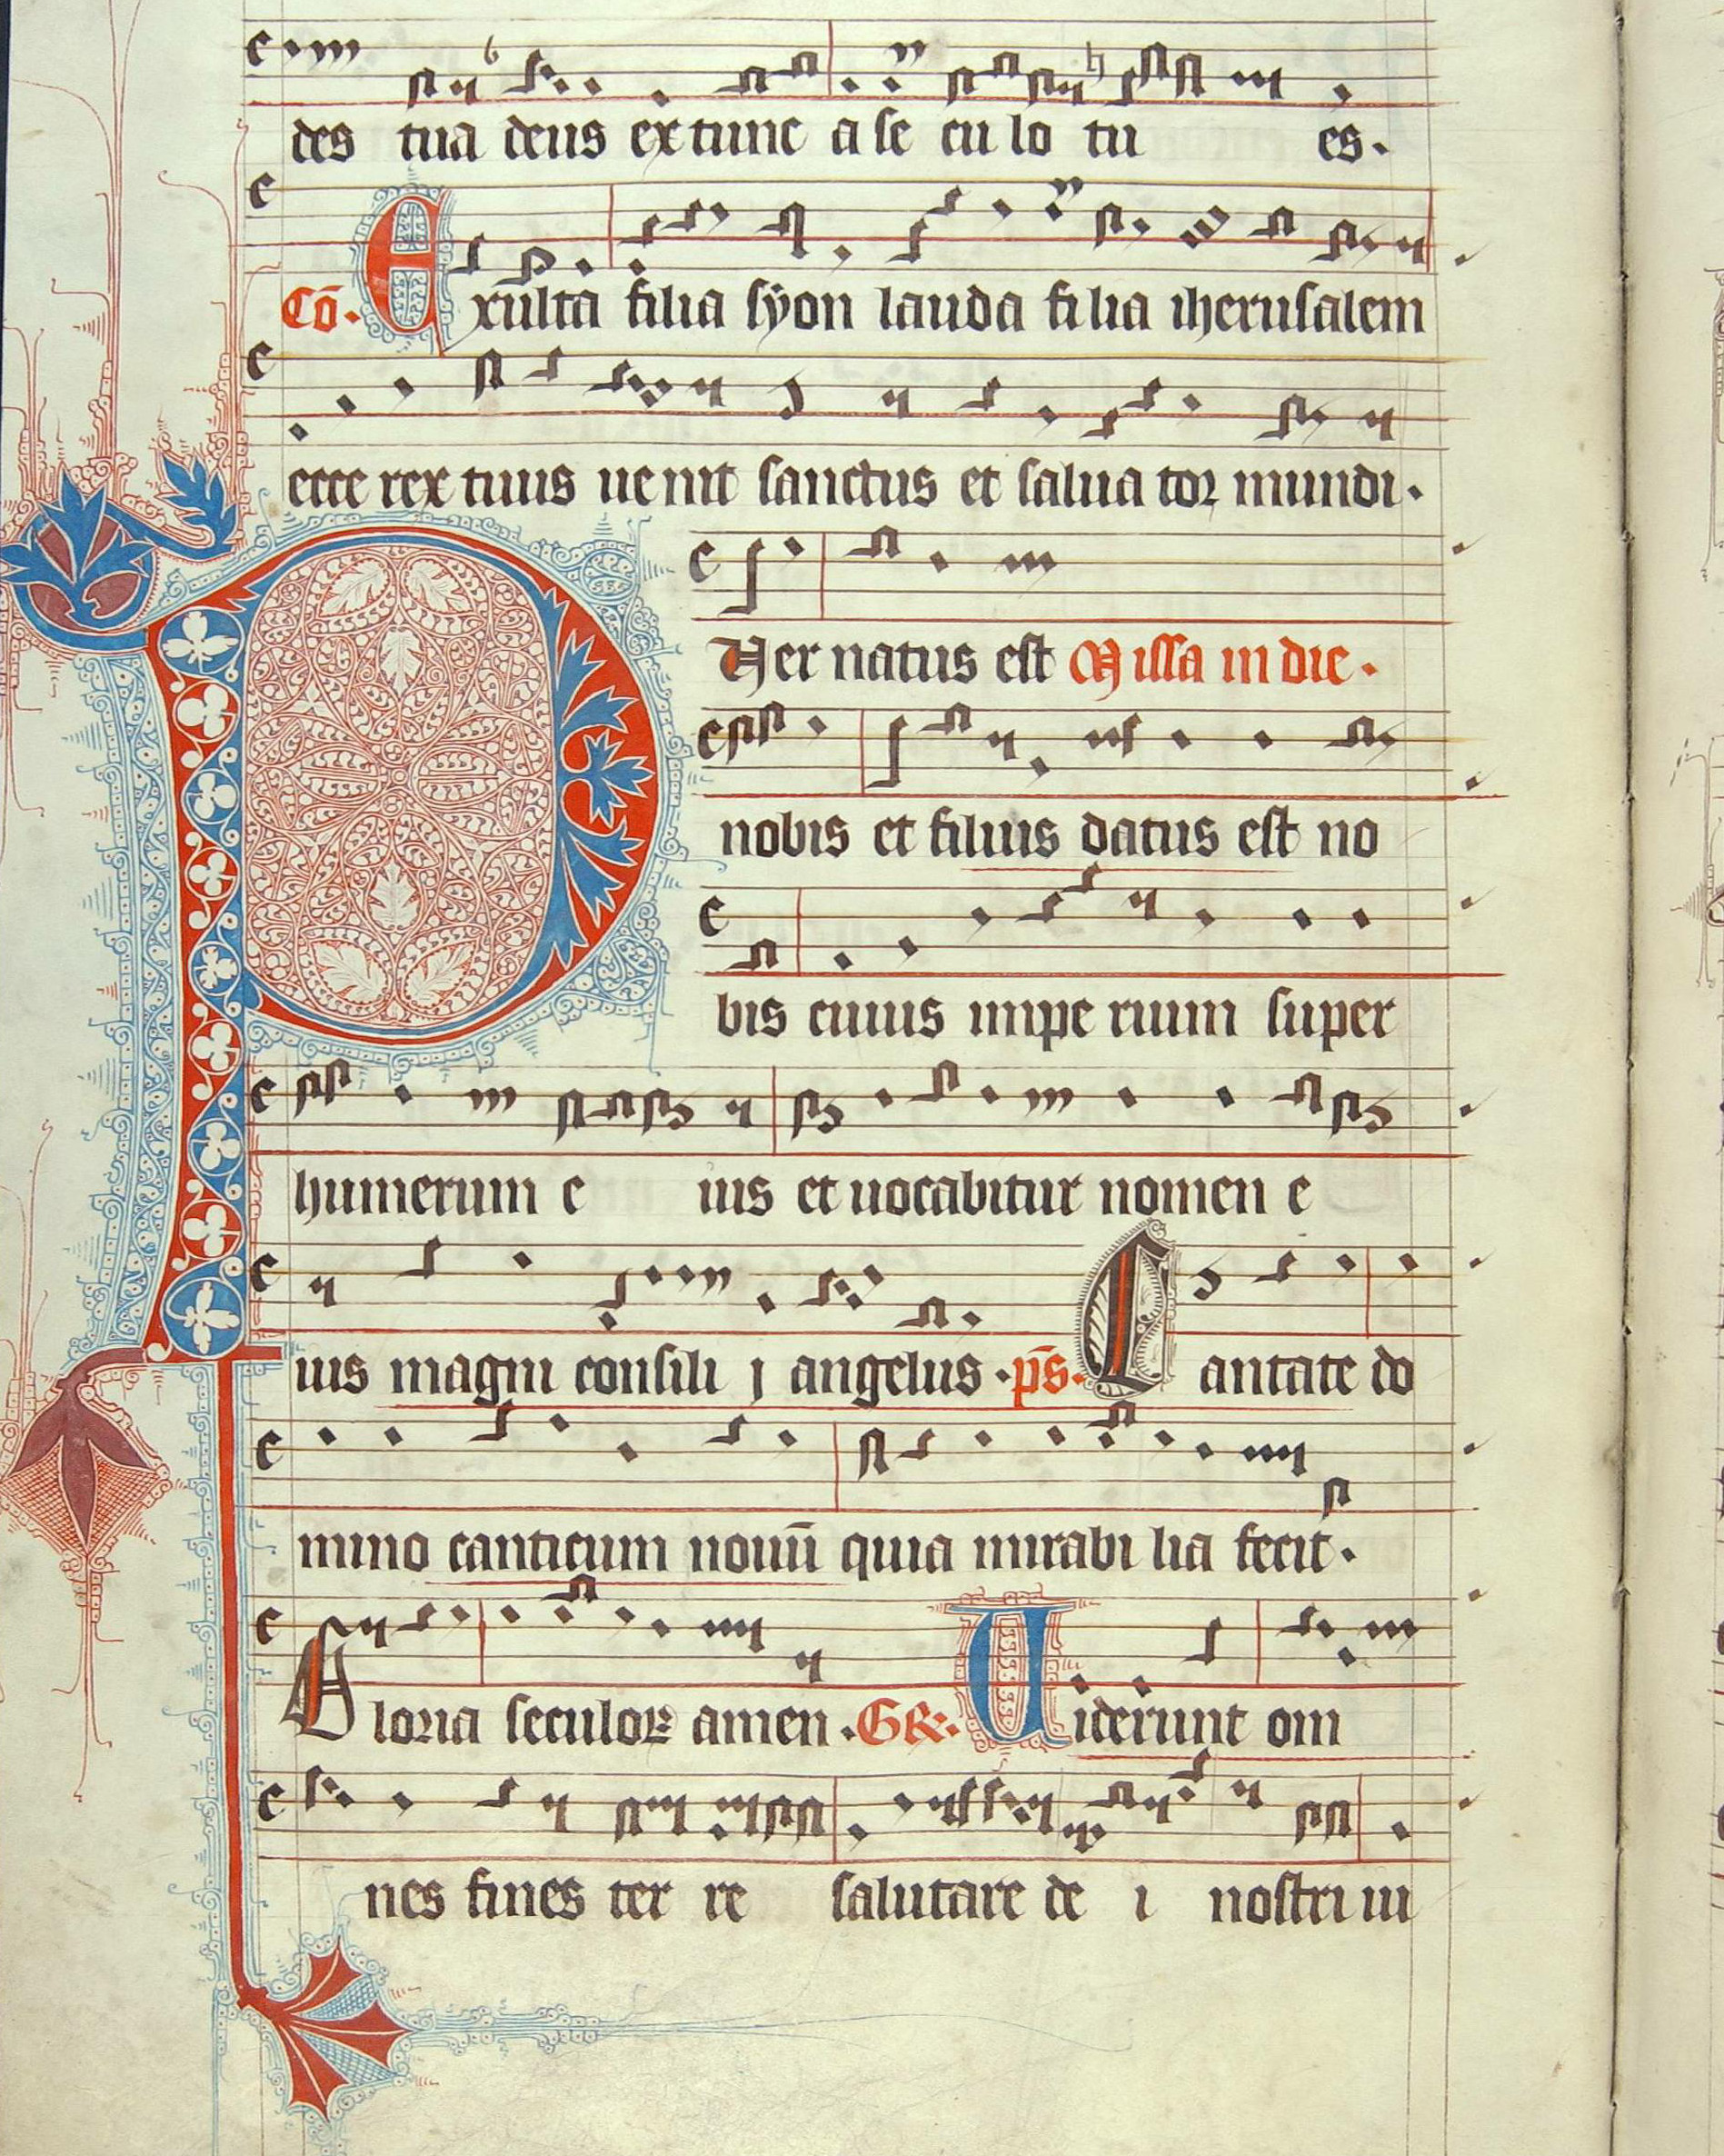 des tua deus ex tunc a se cu lo tu es.
Cō. Exulta filia syon lauda filia iherusalem
ecce rex tuus uenit sanctus et salua tor mundi.
PUer natus est Missa in die.
nobis et filius datus est no
bis cuius impe rium super
humerum e ius et uocabitur nomen e
ius magni consili j angelus. ps̄. Cantate do
mino canticum nouū quia mirabi lia fecit.
Gloria seculoꝝ amen. GR. Uiderunt om
nes fines ter re salutare de i nostri iu